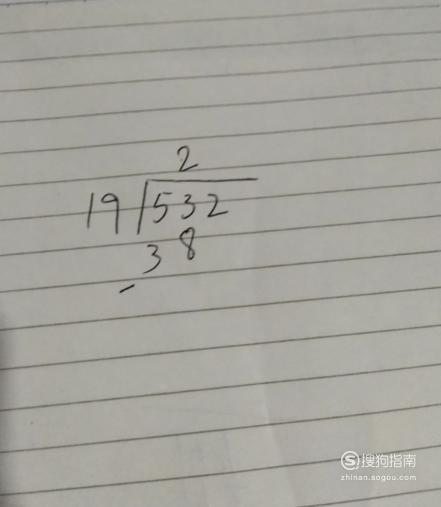 2
19 532
38
-
搜狗指南
zhinan.sogou.com